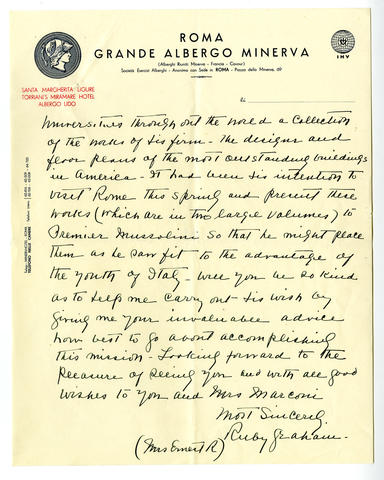 ROMA
GRANDE ALBERGO MINERVA
(Alberghi Riuniti Minerva - Francia - Cavour)
Società Esercizi Alberghi - Anonima con Sede in ROMA - Piazza della Minerva, 69
INV
SANTA MARGHERITA LIGURE
TORRANI'S MIRAMARE HOTEL
ALBERGO LIDO
li
Universities through out the world a collection
of the works of his firm - The designs and
floor plans of the most outstanding buildings
in America - It had been his intention to
visit Rome this spring and present these
works (which are in two large volumes) to
Premier Mussolini so that he might place
them as he saw fit to the advantage of
the youth of Italy - Will you be so kind
as to help me carry out his wish by
giving me your invaluable advice
how best to go about accomplishing
this mission - Looking forward to the
pleasure of seeing you and with all good
wishes to you and Mrs Marconi
Most Sincerely,
Ruby Graham.
(Mrs Ernest R)